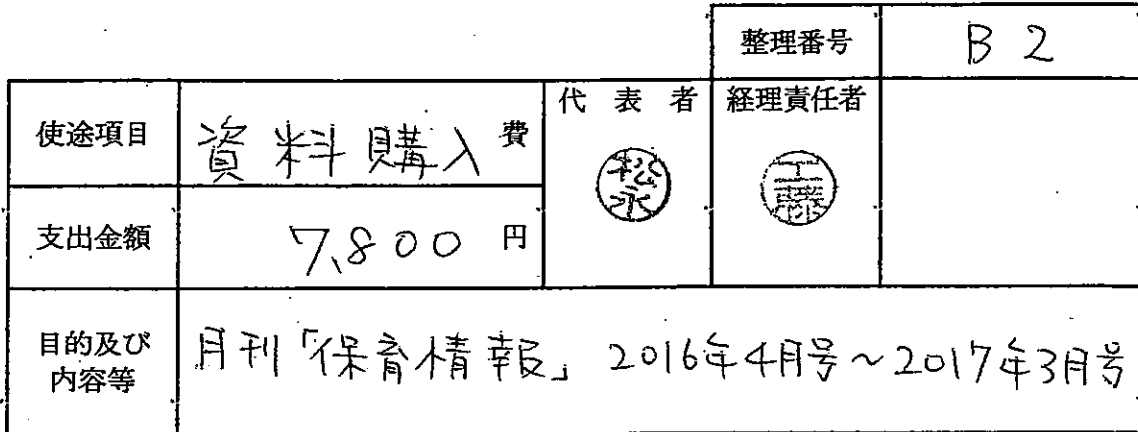 整理番号 B 2
使途項目 資料購入 費
代表者 経理責任者
松永 工藤
支出金額 7,800 円
目的及び内容等 月刊「保育情報」 2016年4月号~2017年3月号